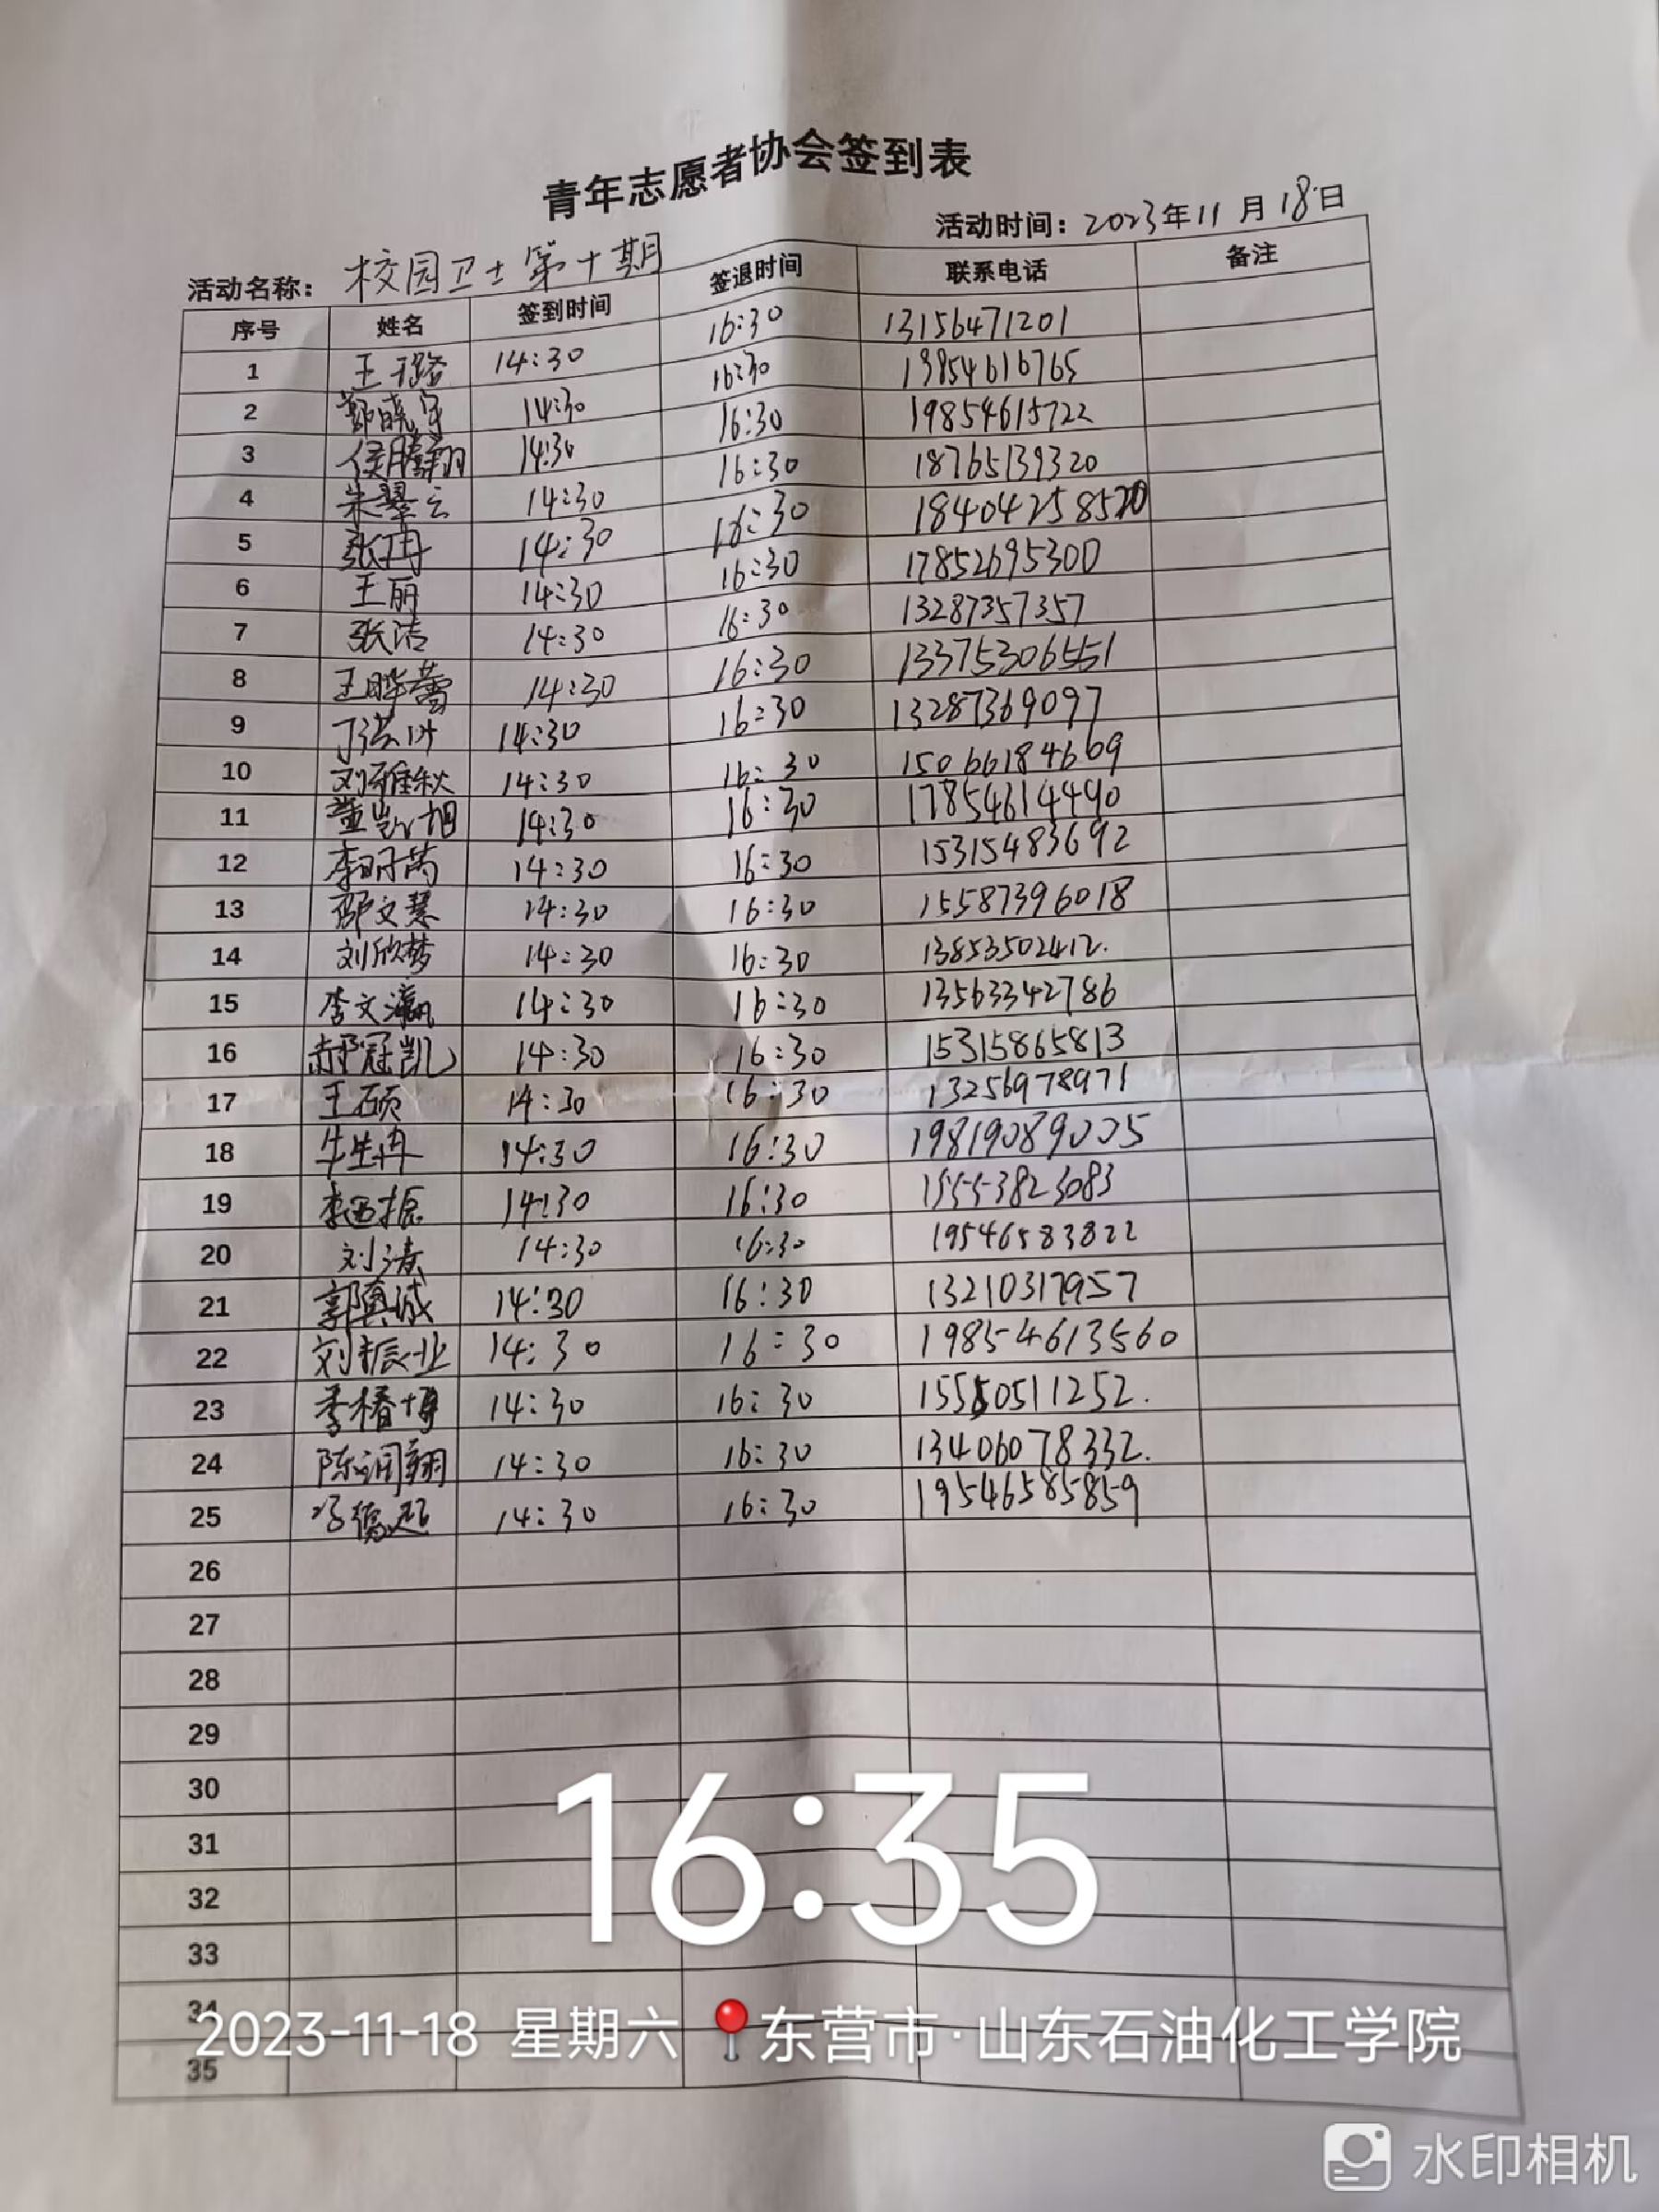 青年志愿者协会签到表
活动名称： 校园卫士第十期 活动时间：2023年11月18日
序号 姓名 签到时间 签退时间 联系电话 备注
1 王璐 14:30 16:30 13156471201
2 郭晓宇 14:30 16:30 19854616765
3 侯腾翔 14:30 16:30 19854615722
4 朱翠云 14:30 16:30 18765139320
5 张冉 14:30 16:30 18404258520
6 王丽 14:30 16:30 17852695300
7 张洁 14:30 16:30 13287357357
8 王晔蕾 14:30 16:30 13375306551
9 丁 14:30 16:30 13287369097
10 刘雅秋 14:30 16:30 15066184669
11 董凯旭 14:30 16:30 17854614490
12 李明芮 14:30 16:30 15315483692
13 邵文慧 14:30 16:30 15587396018
14 刘欣梦 14:30 16:30 13853502412.
15 李文瀛 14:30 16:30 13563342786
16 郝冠凯 14:30 16:30 15315865813
17 王硕 14:30 16:30 13256978971
18 牛生冉 14:30 16:30 19819089005
19 李 振 14:30 16:30 15553823083
20 刘涛 14:30 16:30 19546583822
21 郭真诚 14:30 16:30 13210317957
22 刘振业 14:30 16:30 19854613560
23 李椿博 14:30 16:30 15550511252.
24 陈润翔 14:30 16:30 13406078332.
25 德超 14:30 16:30 19546585859
26
27
28
29
30
31
32
33
34
35
16:35
2023-11-18 星期六 东营市·山东石油化工学院
水印相机